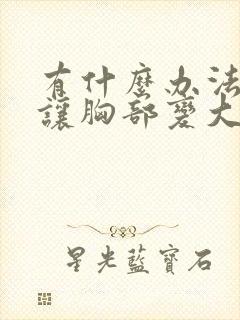 有什麼办法
讓胸部變大
星光藍寶石